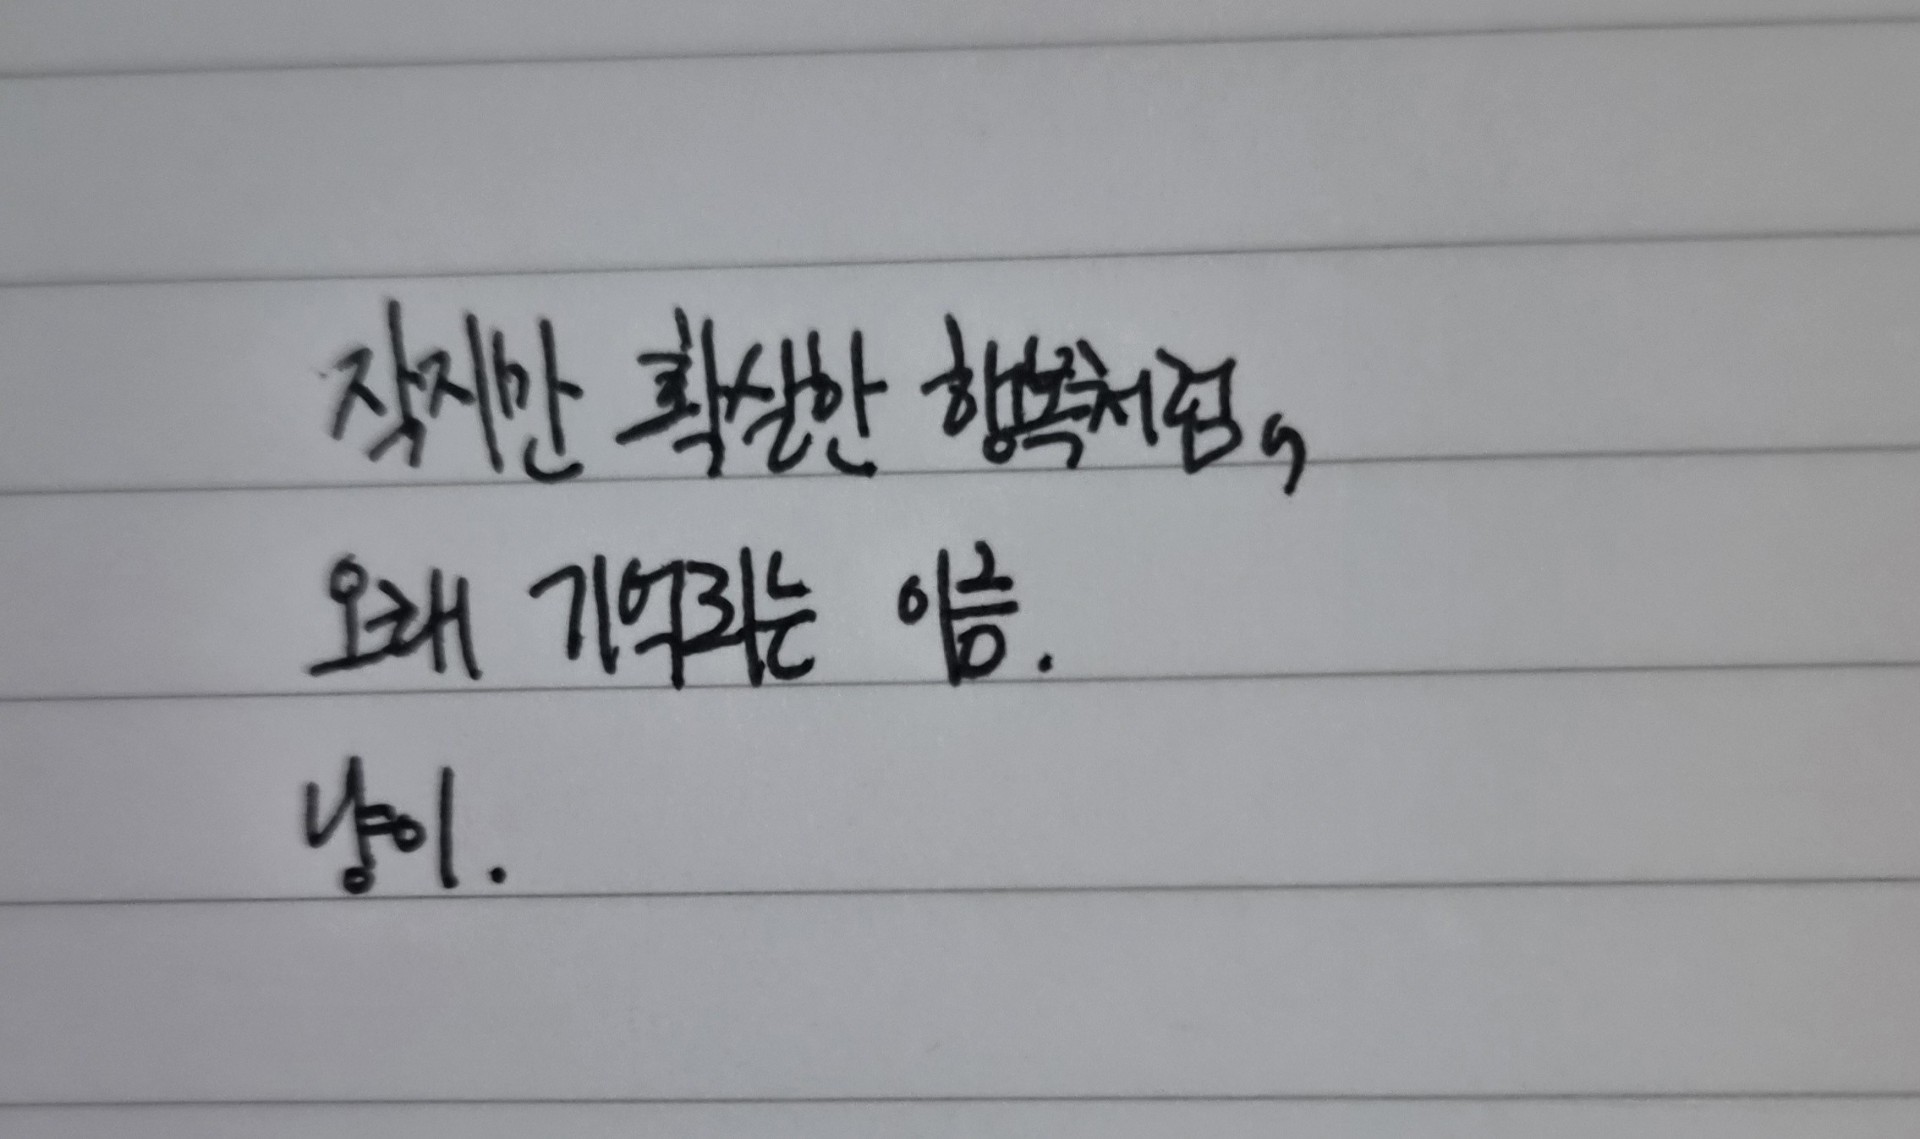 작지만 확실한 행복처럼,
오래 기억되는 이름.
냥이.